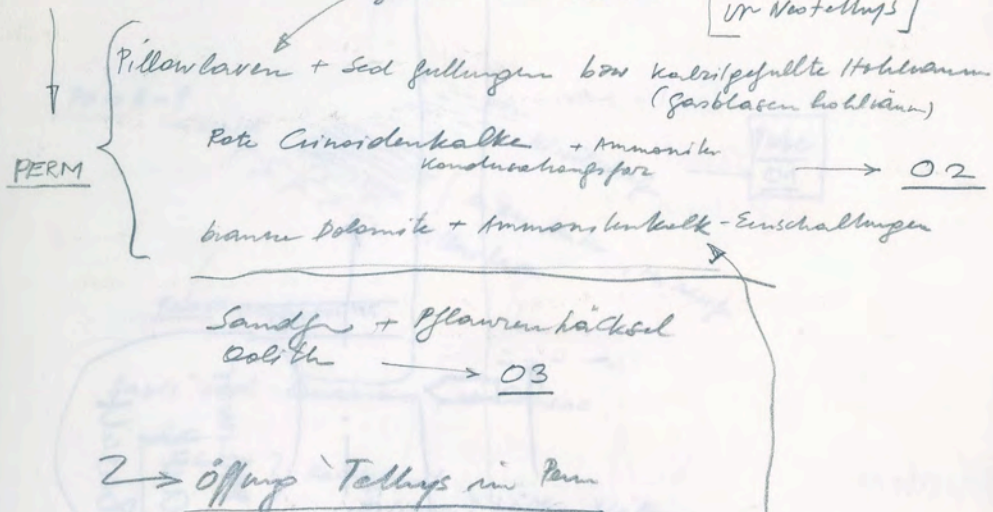 in Neotethys]
Pillowlaven + Sed füllungen bzw Kalzitgefüllte Hohlräume
(Gasblasen hohlräume)
Rote Crinoidenkalke + Ammoniten
Kondensationsfaz → 02
PERM
braune Dolomite + Ammonitenkalk-Einschaltungen
Sandst + Pflanzenhäcksel
Oolith → 03
2 → Öffnung Tethys im Perm